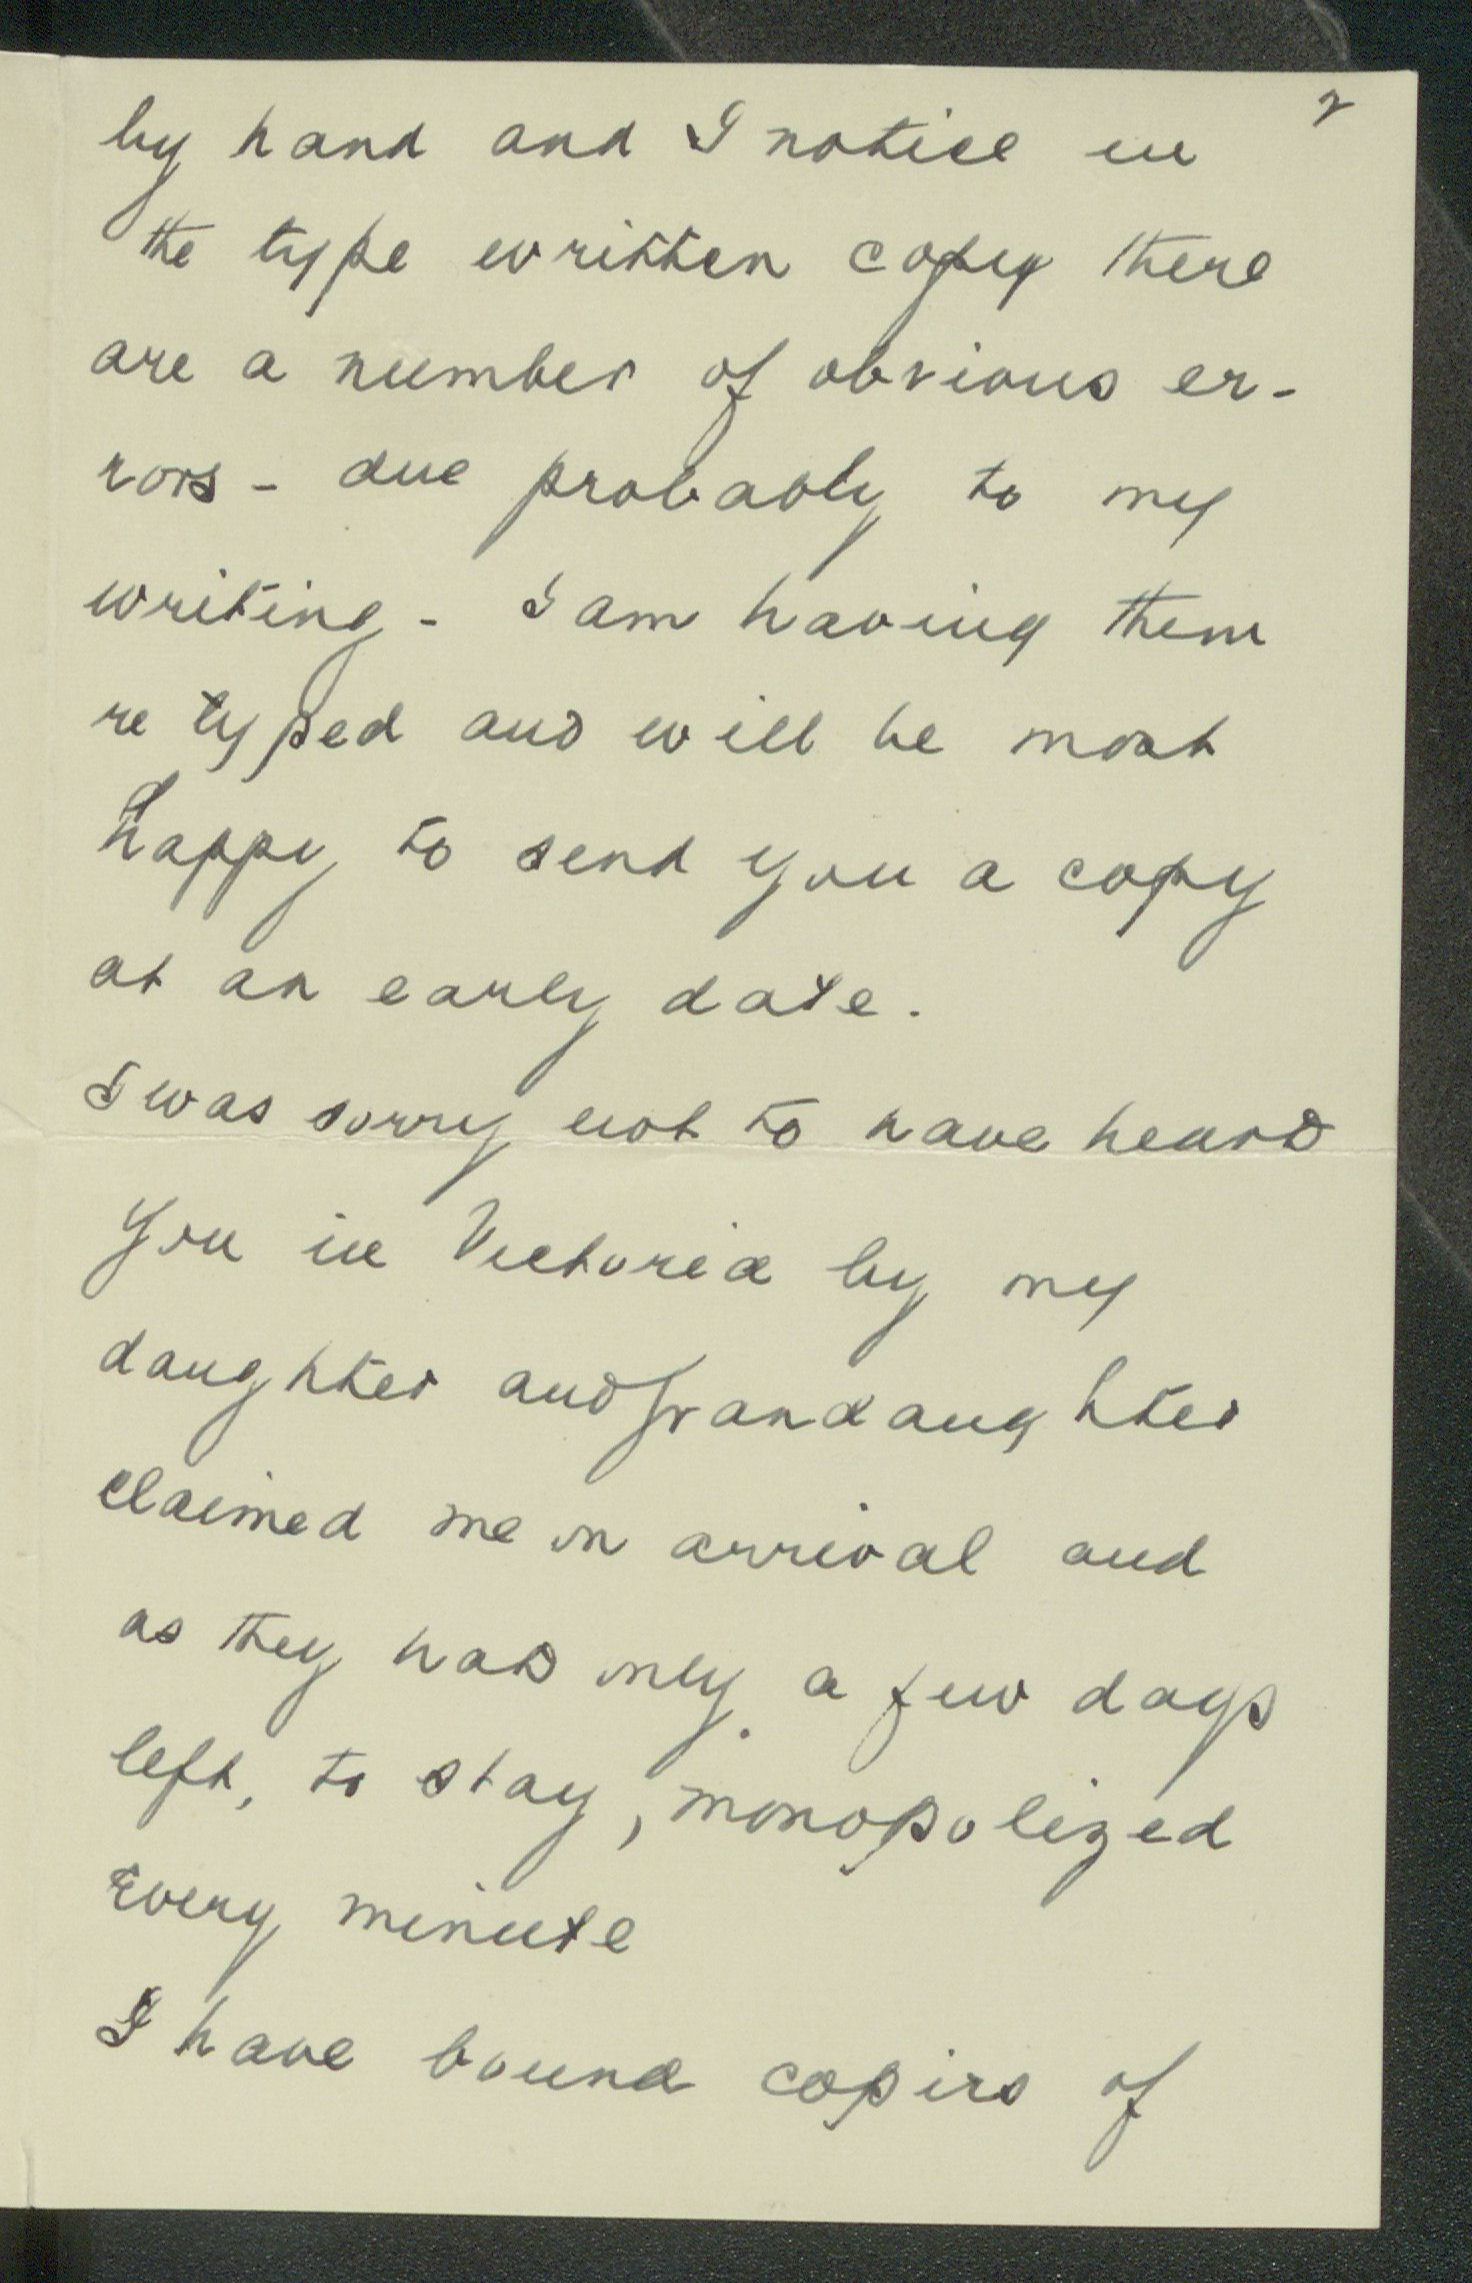 2
by hand and I notice in
the type written copy there
are a number of obvious er-
rors - due probably to my
writing - I am having them
re typed and will be most
happy to send you a copy
at an early date.
I was sorry not to have heard
you in Victoria by my
daughter and grandaughter
claimed me on arrival and
as they had only a few days
left, to stay, monopolized
every minute
I have bound copies of